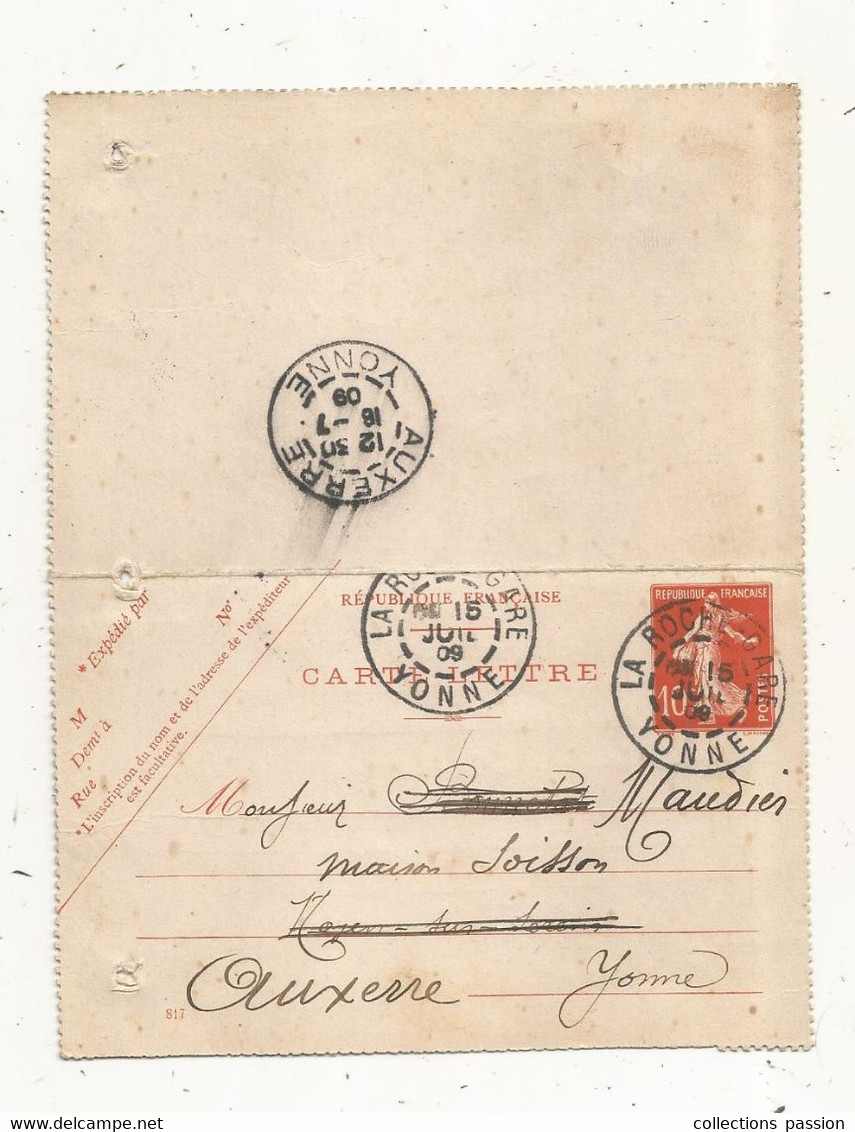 AUXERRE
12 30
16 -7
09
YONNE
* Expédié par
M
Demt à
Rue
No
*L'inscription du nom et de l'adresse de l'expéditeur
est facultative.
RÉPUBLIQUE FRANÇAISE
CARTE-LETTRE
LA ROCHE GARE
15
JUIL
09
YONNE
REPUBLIQUE FRANÇAISE
10
POSTES
LA ROCHE GARE
15
JUIL
09
YONNE
Monsieur Maudier
maison Soisson
Noyers-sur-Serein
Auxerre Yonne
817
collections passion